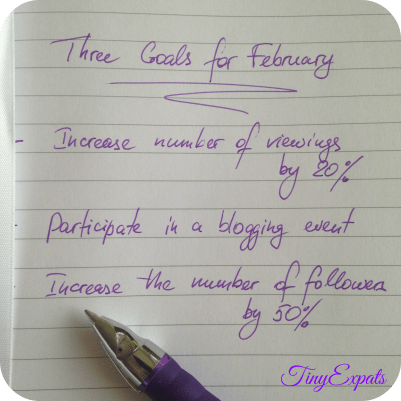 Three Goals for February
- Increase number of viewings
by 20%
- Participate in a blogging event
- Increase the number of followers
by 50%
TinyExpats